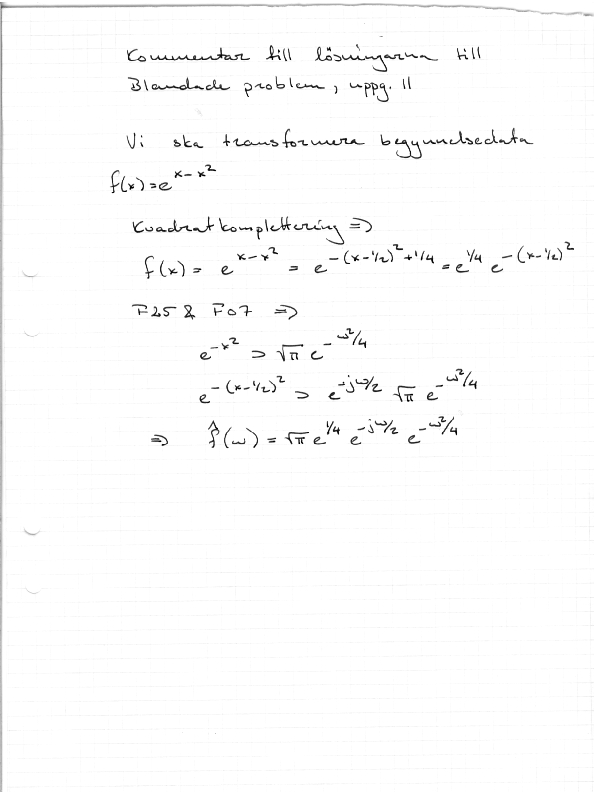 Kommentar till lösningarna till
Blandade problem, uppg. 11
Vi ska transformera begynnelsedata
f(x)=e^{x-x²}
Kvadratkomplettering ⇒
f(x) = e^{x-x²} = e^{-(x-1/2)²+1/4} = e^{1/4} e^{-(x-1/2)²}
F25 & F07 ⇒
e^{-x²} ⊃ √π e^{-ω²/4}
e^{-(x-1/2)²} ⊃ e^{-jω/2} √π e^{-ω²/4}
⇒ f̂(ω) = √π e^{1/4} e^{-jω/2} e^{-ω²/4}